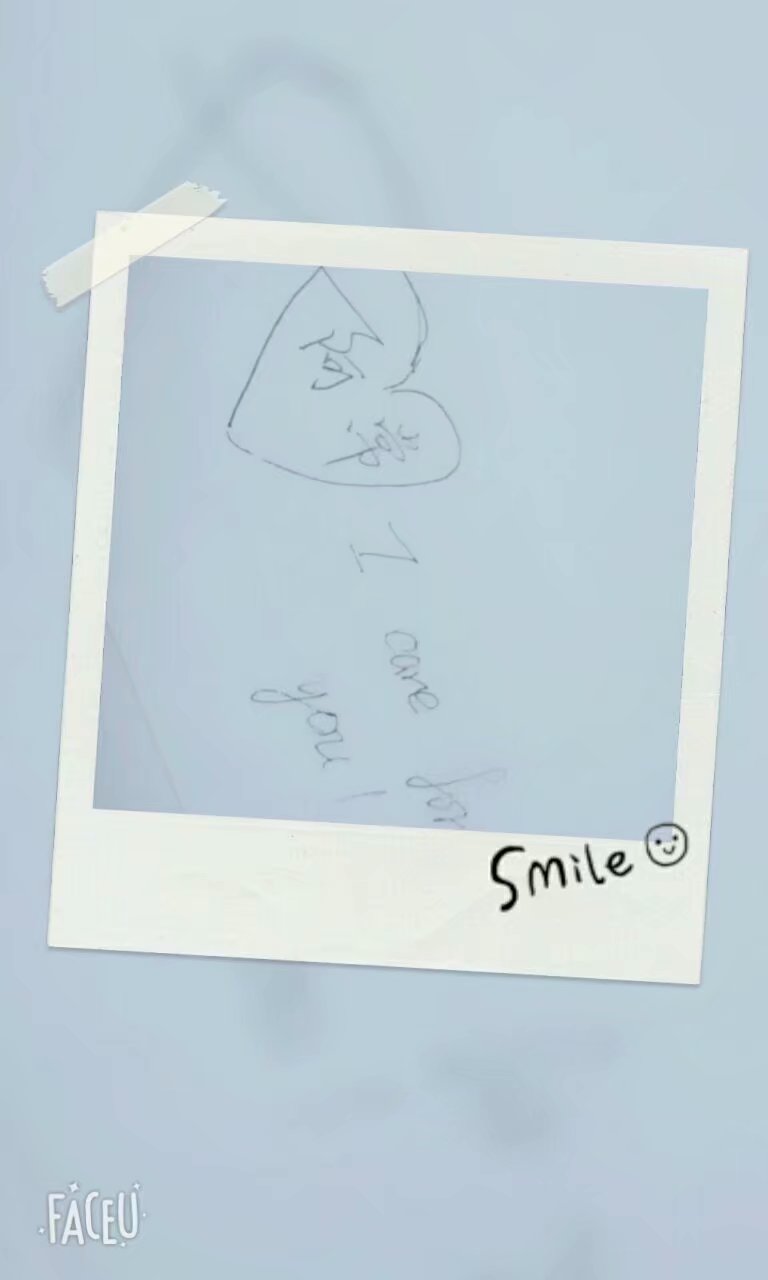 I care for
you!
Smile
FACEU